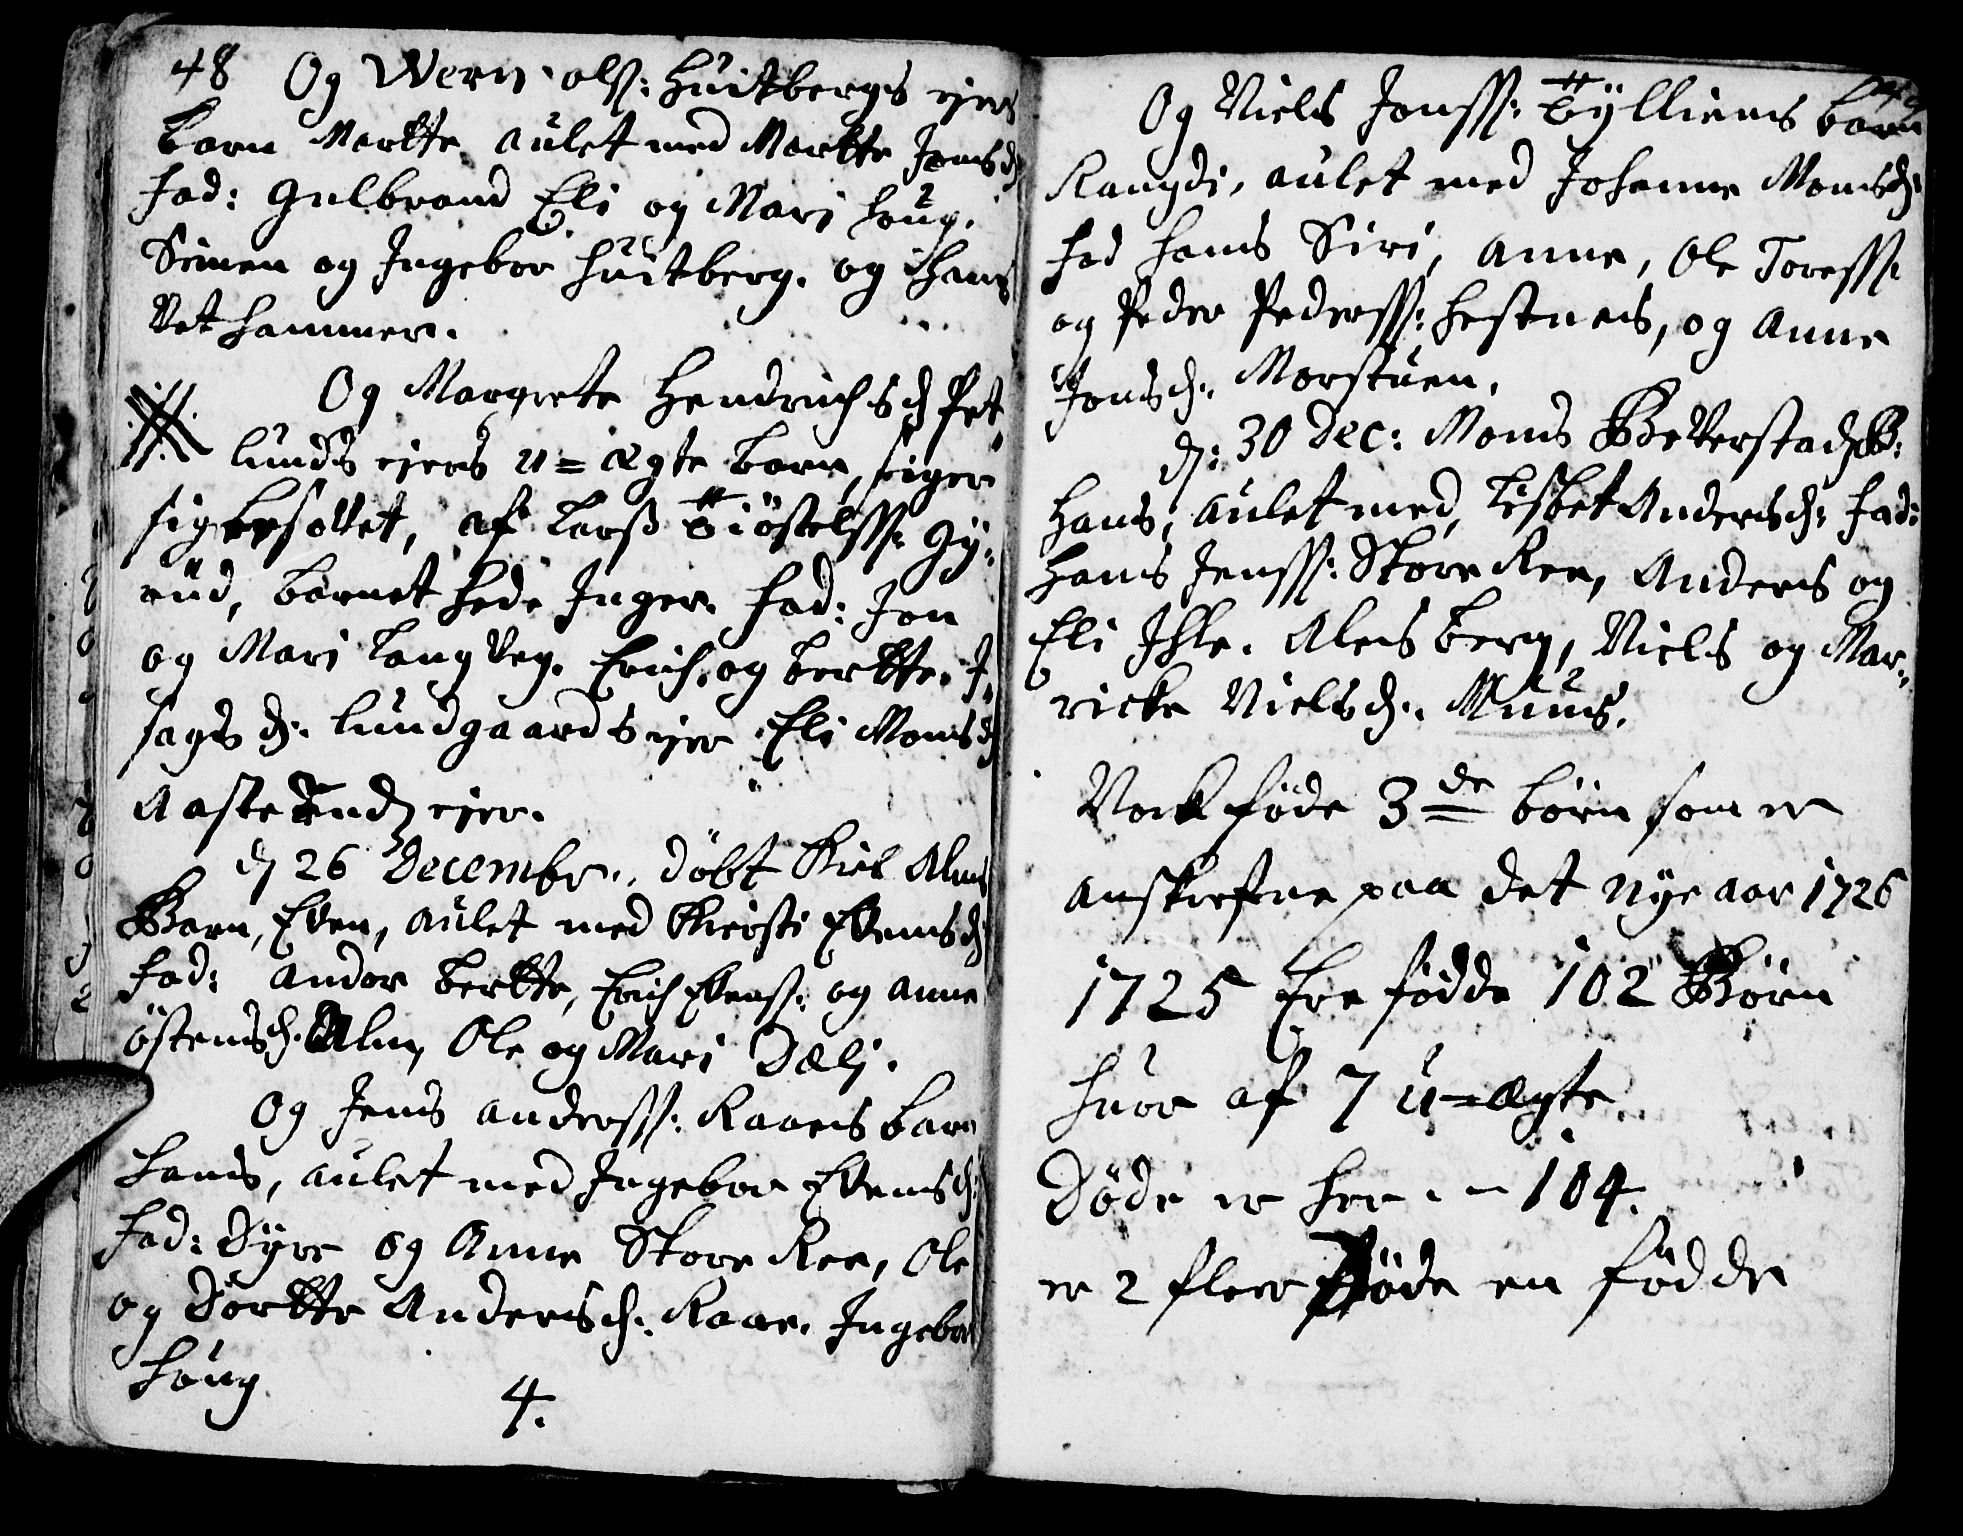 48 Og Wern olss: Huitbergs ejers
barn Marthe aulet med Marthe Jonsd:
fad: Gulbrand Eli og Mari Houg.
Simen og Ingebor Huitberg. og Hans
Vethammer.
Og Margrete Hendrichsd Pet
lunds ejers u=ægte barn, siger
sig besovet, af Larss Kiöstelss: Gy-
rud, barnet hede Inger. fad: Jon
og Mari Langveg. Erich og Berthe. I-
sagsd: Lundgaards ejer Eli Monsd
Aasterudz ejer.
d 26 Decembr., döbt Kiel Alms
Barn, Even, aulet med Kiersti Evensd:
fad: Andor Berthe, Erich Evenss: og Anne
östensd: Alm, Ole og Mari Dæli.
Og Jens Anderss: Raaes barn
Hans, aulet med Ingebor Evensd:
fad: Dyre og Anne Store Ree, Ole
og Dorthe Andersd: Raae. Ingebor
Houg
4.
49
Og Niels Jonss: Kylliens barn
Rangdi, aulet med Johanne Monsd:
fad Hans Siri, Anne, Ole Toress:
og Peder Pederss: Hestnes, og Anne
Jonsd: Morstuen.
d: 30 Dec: Mons Beverstadz B:
Hans, aulet med, Lisbet Andersd: fad:
Hans Jenss: Store Ree, Anders og
Eli Ihle. Ales Berg, Niels og Mar-
ricke Nielsd: Muus.
Nock föde 3de börn som er
anskrefne paa det Nye aar 1726
1725 Ere födde 102 Börn
huor af 7 u=ægte.
Döde er her - - 104.
er 2 fleer Döde en födde